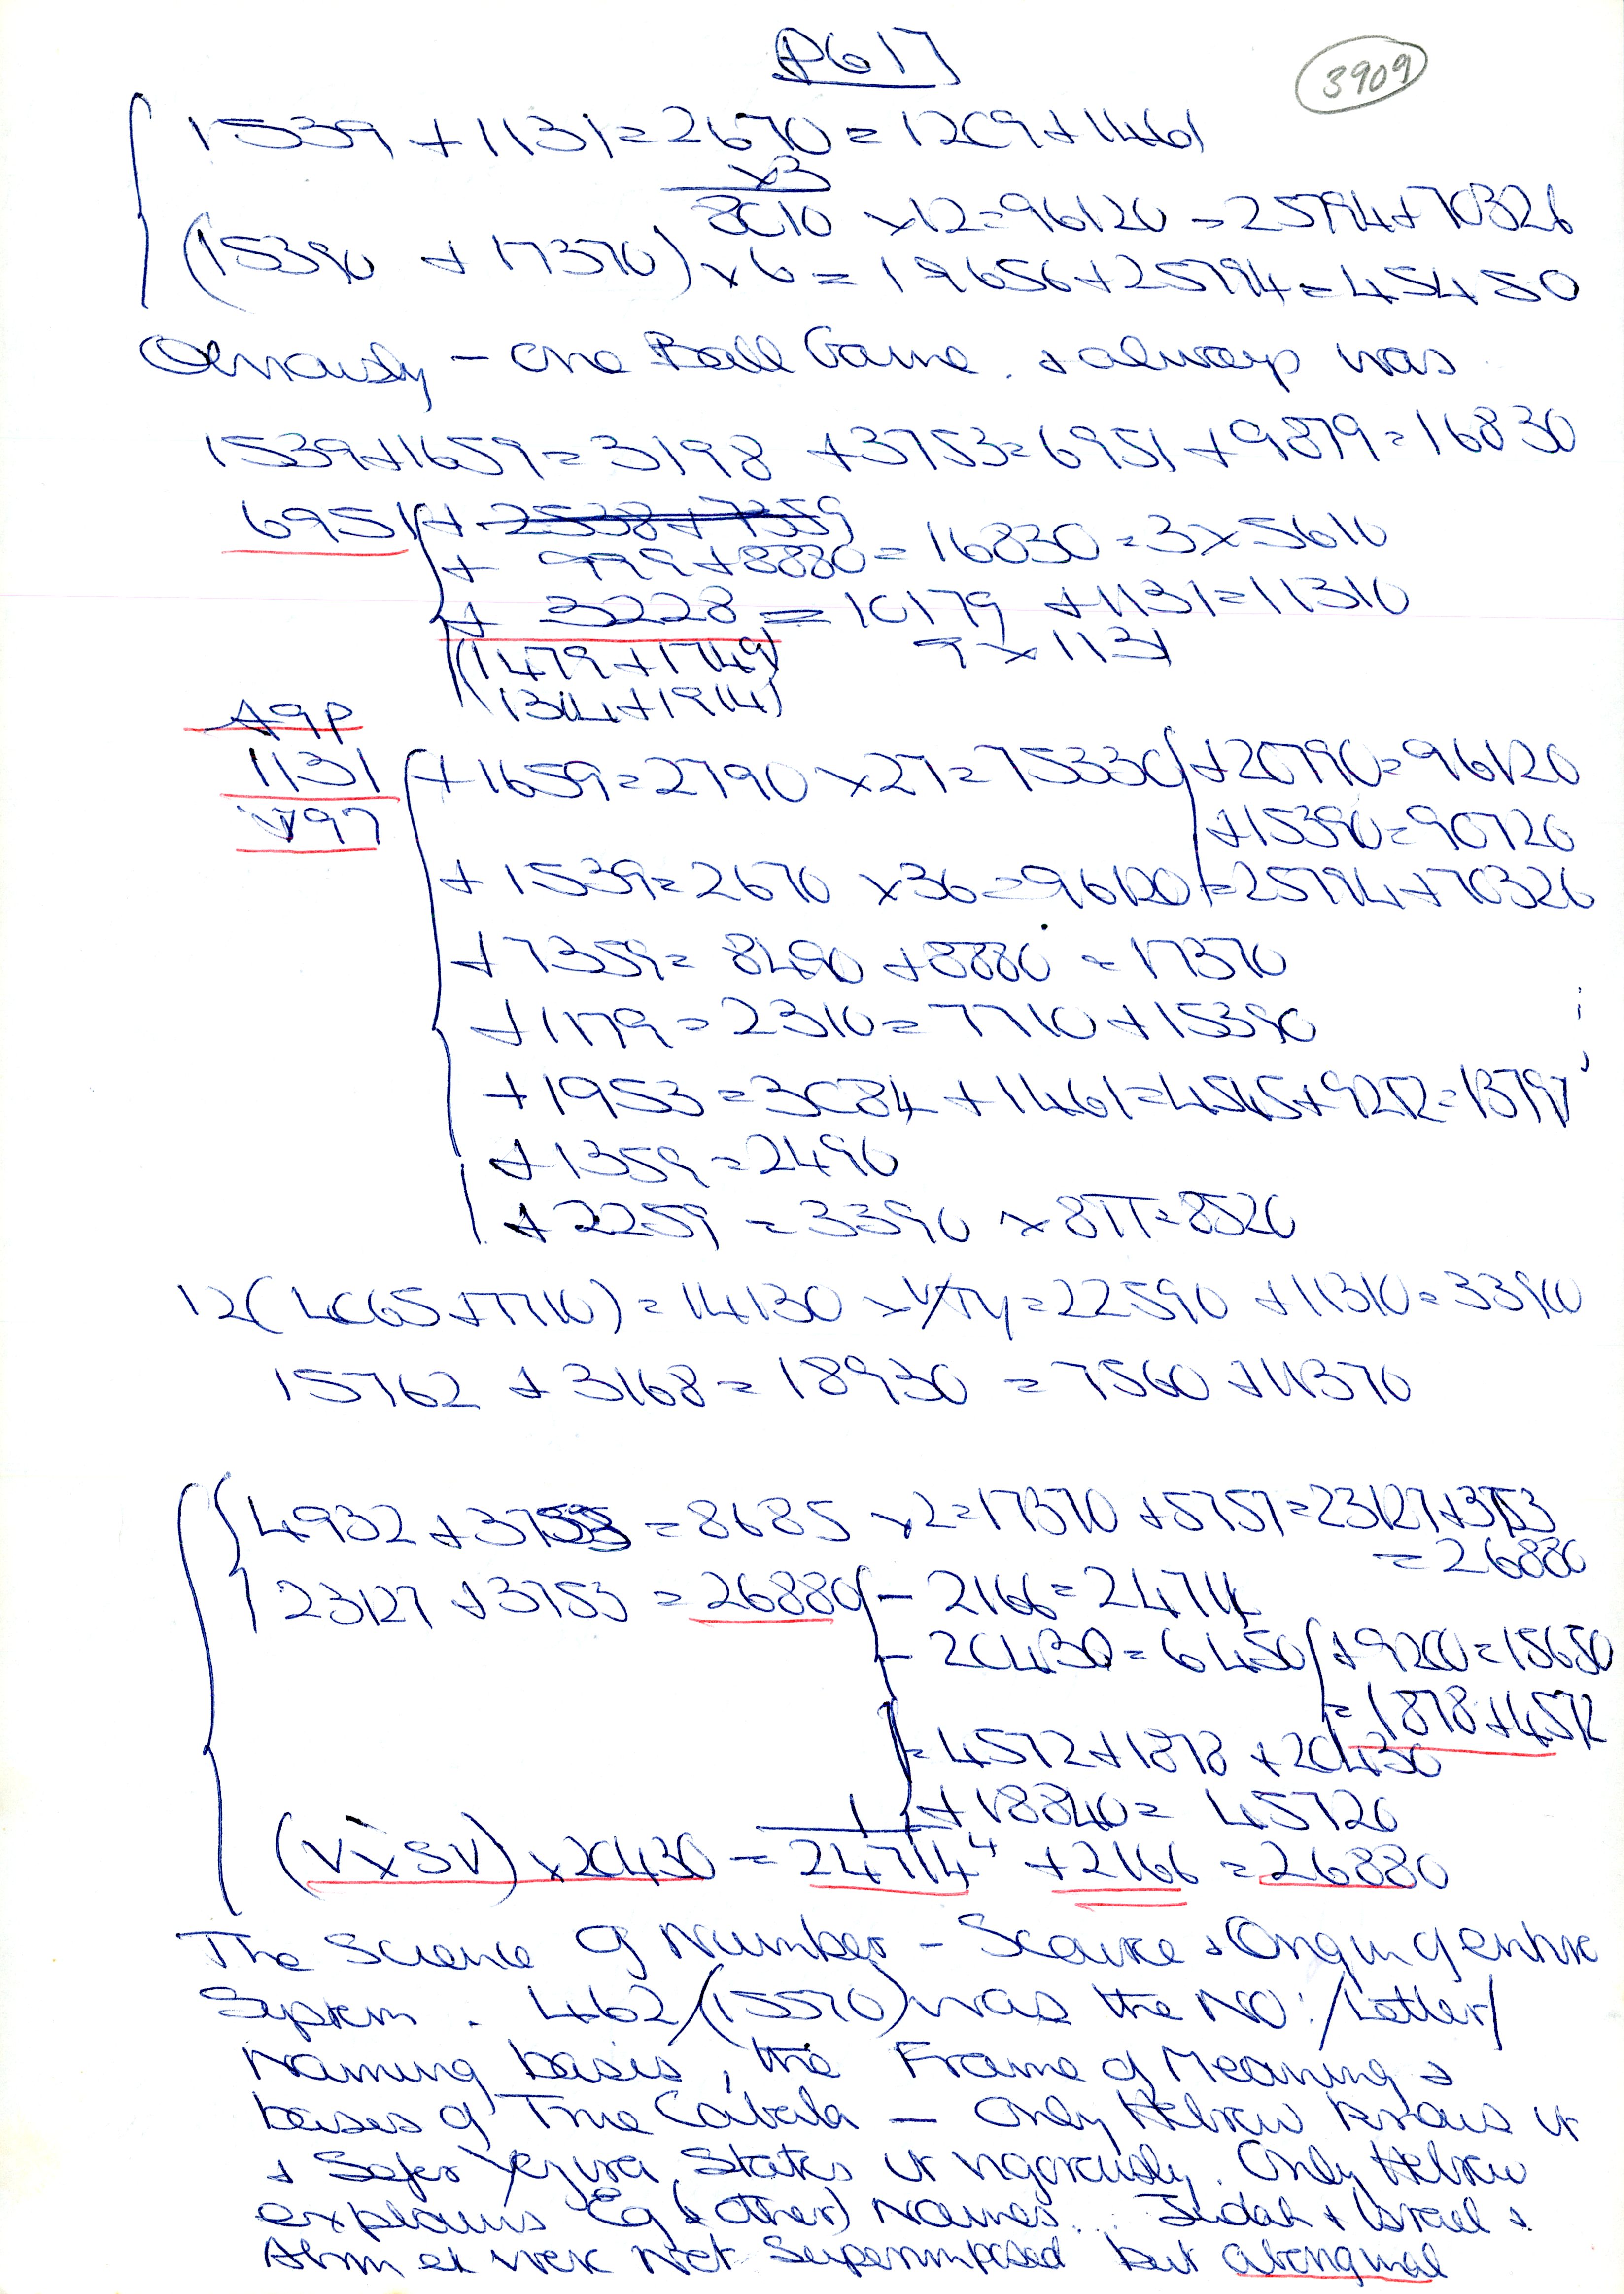 PG 17
3909
1539 + 1131 = 2670 = 1209 + 1461
x3
8010 x 12 = 96120 = 25794 + 70326
(15390 + 17370) x 6 = 19656 + 25794 = 45450
Obviously – one Ball Game. + always was
1539 + 1659 = 3198 + 3753 = 6951 + 9879 = 16830
6951 + 2538 + 7359
+ 999 + 8880 = 16830 = 3 x 5610
+ 3228 = 10179 + 1131 = 11310
(1479 + 1749) 9 x 1131
(1314 + 1914)
A9P
1131 + 1659 = 2790 x 27 = 75330 + 20790 = 96120
V97 + 15390 = 90720
+ 1539 = 2670 x 36 = 96120 = 25794 + 70326
+ 7359 = 8490 + 8880 = 17370
+ 1179 = 2310 = 7710 + 15390
+ 1953 = 3084 + 1461 = 4545 + 9252 = 13797
+ 1359 = 2490
+ 2259 = 3390 x 8π = 8520
12(4065 + 7710) = 14130 = 22590 + 11310 = 33900
15762 + 3168 = 18930 = 7560 + 11370
4932 + 3753 = 8685 x 2 = 17370 + 5757 = 23127 + 3753
= 26880
23127 + 3753 = 26880 – 2166 = 24714
– 20430 = 6450 + 9200 = 15650
= 1878 + 4572
= 4572 + 1878 + 20430
+ 18840 = 45720
(V x SV) x 20430 = 24714⁴ + 2166 = 26880
The Science of Number – Source + Origin of entire
System. 462/(15570) was the NO:/Letter/
Naming basis, the Frame of Meaning +
bases of True Cabala – Only Hebrew knows it
+ Sefer Yezira States it vigorously. Only Hebrew
explains Eg (+ other) Names... Judah + Israel +
were not Superimposed but aboriginal